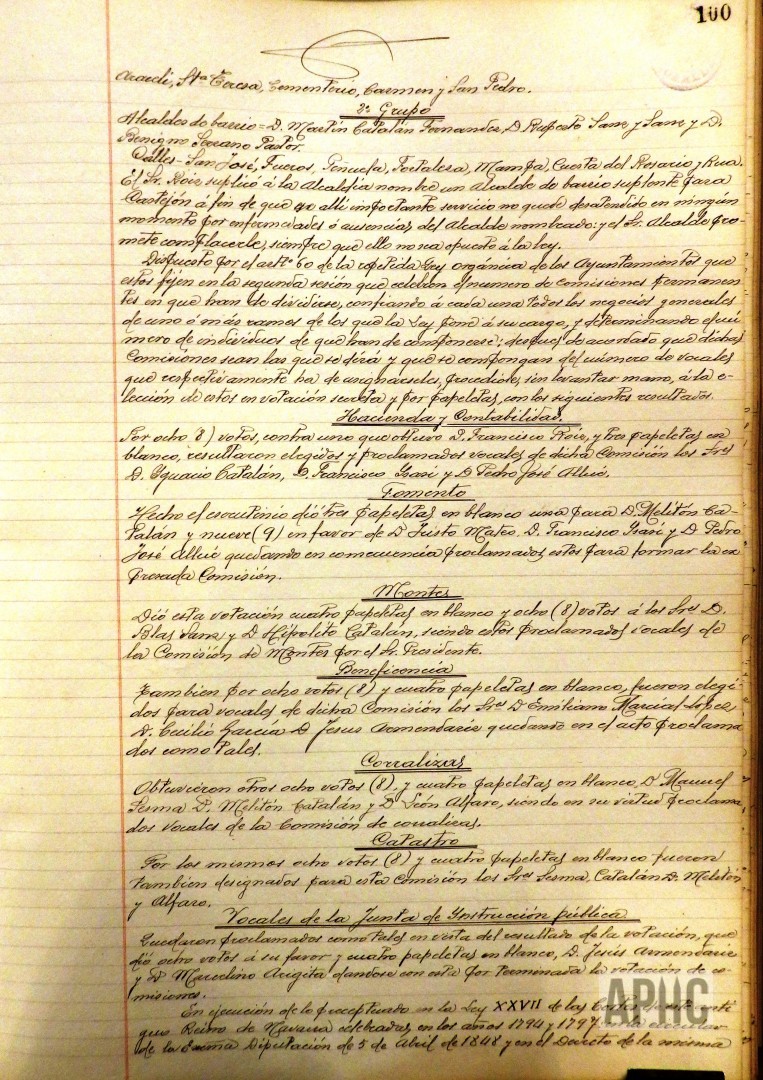 100
Araedi, Sta Teresa, Cementerio, Carmen y San Pedro.
3er Grupo
Alcaldes de barrio = D. Martín Catalán Fernandez, D. Ruperto Sanz y Sanz y D.
Benigno Serrano Pastor.
Calles - San José, Fueros, Tenuela, Fortaleza, Mampa, Cuesta del Rosario y Rua.
El Sr. Roiz suplicó á la Alcaldía nombre un Alcalde de barrio suplente para
Castejón á fin de que aquel importante servicio no quede desatendido en ningún
momento por enfermedades ó ausencias del Alcalde nombrado; y el Sr. Alcalde pro-
mete complacerle, siempre que ello no sea opuesto á la ley.
Dispuesto por el artº 60 de la repetida Ley orgánica de los Ayuntamientos que
estos fijen en la segunda sesión que celebren el numero de comisiones permanen-
tes en que han de dividirse, confiando á cada una todos los negocios generales
de uno ó más ramos de los que la Ley pone á su cargo, y determinando el nú-
mero de individuos de que han de componerse; despues de acordado que dichas
Comisiónes sean las que se dirá y que se compongan del número de vocales
que respectivamente ha de asignárseles, procediose, sin levantar mano, á la e-
lección de estos en votación secreta y por papeletas, con los siguientes resultados.
Hacienda y Contabilidad
Por ocho (8) votos, contra uno que obtuvo D. Francisco Roiz, y tres papeletas en
blanco, resultaron elegidos y proclamados vocales de dicha Comisión los Sres
D. Ygnacio Catalán, D. Francisco Ysasi y D. Pedro José Allué.
Fomento
Hecho el escrutinio dió tres papeletas en blanco una para D. Melitón Ca-
talán y nueve (9) en favor de D. Justo Mateo, D. Francisco Ysasi y D. Pedro
José Allué quedando en consecuencia proclamados, estos para formar la ex
presada Comisión.
Montes
Dió esta votación cuatro papeletas en blanco y ocho (8) votos á los Sres D.
Blas y D. Hipólito Catalán, siendo estos proclamados vocales de
la Comisión de Montes por el Sr. Presidente.
Beneficencia
Tambien por ocho votos (8) y cuatro papeletas en blanco, fueron elegi-
dos para vocales de dicha Comisión los Sres D. Emiliano Marcial Lopez
D. Cecilio García D. Jesus Armendariz quedando en el acto proclama
dos como tales.
Corralizas
Obtuvieron otros ocho votos (8) y cuatro papeletas en blanco, D. Manuel
Sesma D. Melitón Catalán y D. León Alfaro, siendo en su virtud proclama-
dos vocales de la Comisión de corralizas.
Catastro
Por los mismos ocho votos (8) y cuatro papeletas en blanco fueron
tambien designados para esta Comisión los Sres Sesma, Catalán D. Melitón
y Alfaro.
Vocales de la Junta de Ynstrucción pública
Quedaron proclamados como tales en vista del resultado de la votación, que
dió ocho votos á su favor y cuatro papeletas en blanco, D. Jesús Armendariz
y D. Marcelino Arigita dandose con esta por terminada la votación de co-
misiones.
En ejecución de lo preceptuado en la Ley XXVII de las Cortes de este anti
guo Reino de Navarra celebradas, en los años 1794 y 1797 en la circular
de la Excma Diputación de 5 de Abril de 1848 y en el Decreto de la misma
APHC